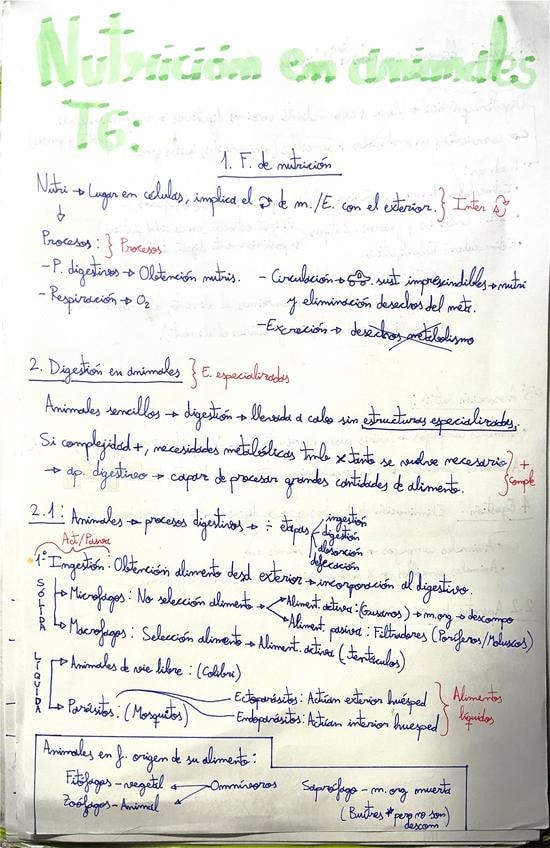 Nutrición en animales
T6:
1. F. de nutrición
Nutri → Lugar en células, implica el de m./E. con el exterior. } Inter
↓
Procesos: } Procesos
- P. digestivos → Obtención nutris.
- Respiración → O₂
- Circulación → sust imprescindibles → nutri
y eliminación desechos del met.
- Excreción → desechos metabolismo
2. Digestión en animales } E. especializadas
Animales sencillos → digestión → llevada a cabo sin estructuras especializadas.
Si complejidad +, necesidades metabólicas tmb x tanto se vuelve necesario
→ ap. digestivo → capaz de procesar grandes cantidades de alimento. } + comple
2.1: Animales → procesos digestivos → ÷ etapas
ingestión
digestión
absorción
defecación
Act/Pasiva
1º Ingestión: Obtención alimento desd exterior → incorporación al digestivo.
SÓLIDA
→ Micrófagos: No selección alimento →
Aliment. activa: (Gusanos) → m.org → descompo
Aliment. pasiva: Filtradores (Poríferos/Moluscos)
→ Macrófagos: Selección alimento → Aliment. activa (tentáculos)
LÍQUIDA
→ Animales de vie libre: (Colibrí)
→ Parásitos: (Mosquitos)
Ectoparásitos: Actúan exterior huésped
Endoparásitos: Actúan interior huésped
} Alimentos líquidos
Animales en f. origen de su alimento:
Fitófagos - vegetal
Zoófagos - Animal
Omnívoros
Saprófago - m. org muerta
(Buitres * pero no son
descom)